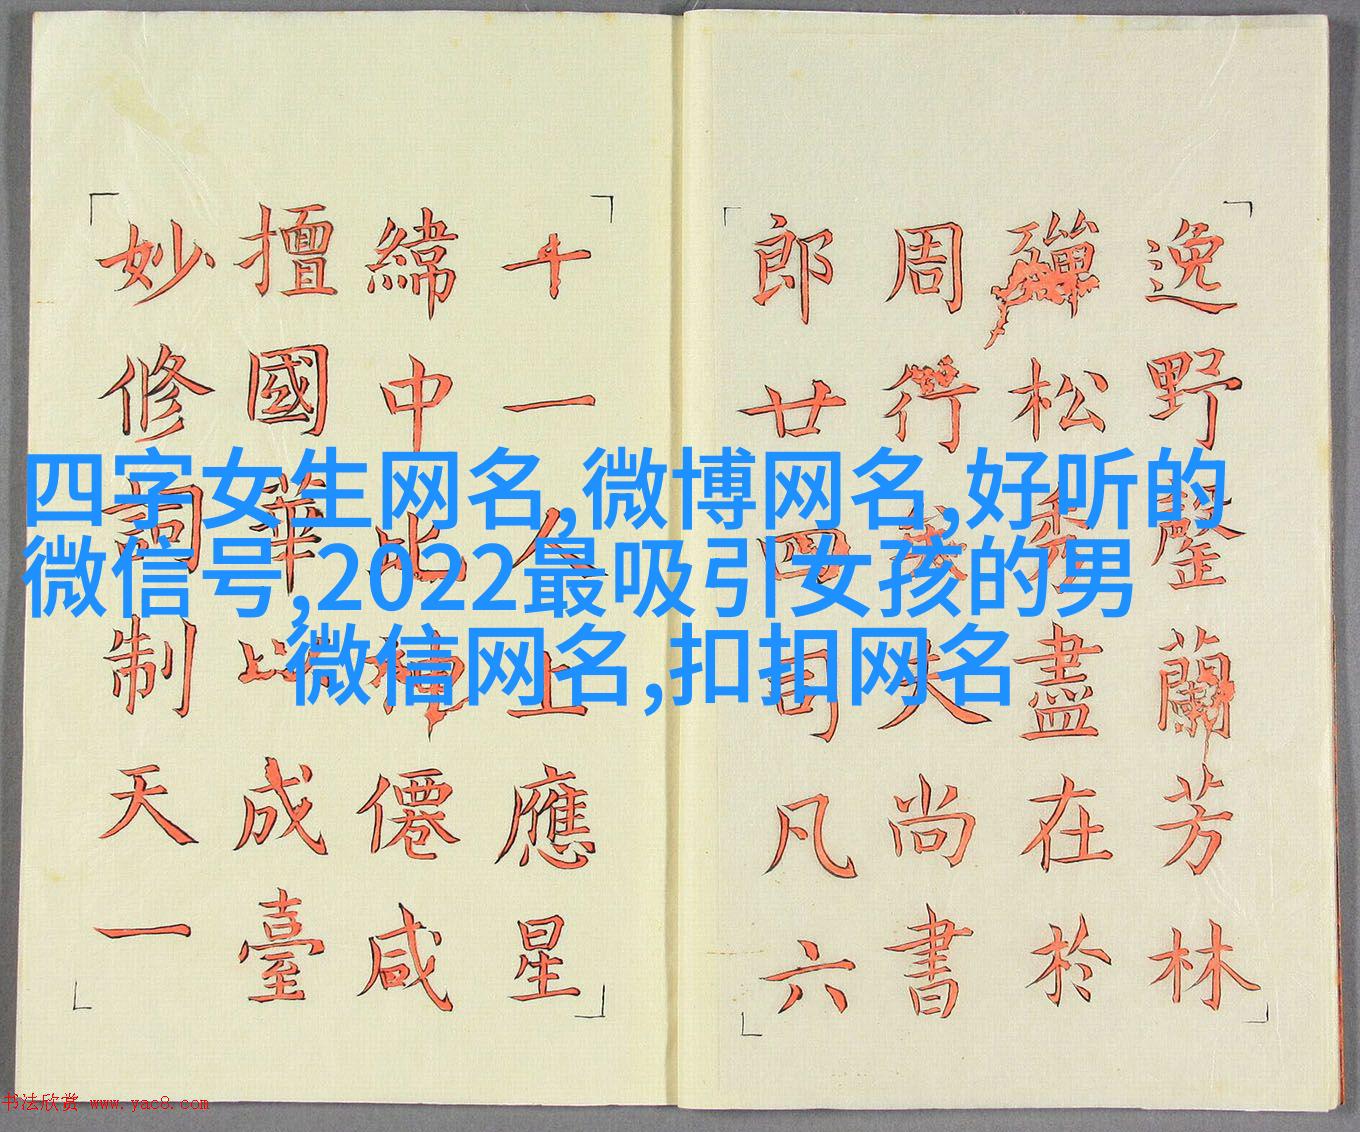 逸野蘭芳林
殫松秀盡在於
周行夫尚書
郎廿四司凡六
十一人上應星
緯中比神僊咸
擅國華以成臺
妙修詞制天一
四字女生网名,微博网名,好听的
微信号,2022最吸引女孩的男
微信网名,扣扣网名
书法欣赏 www.yac8.com